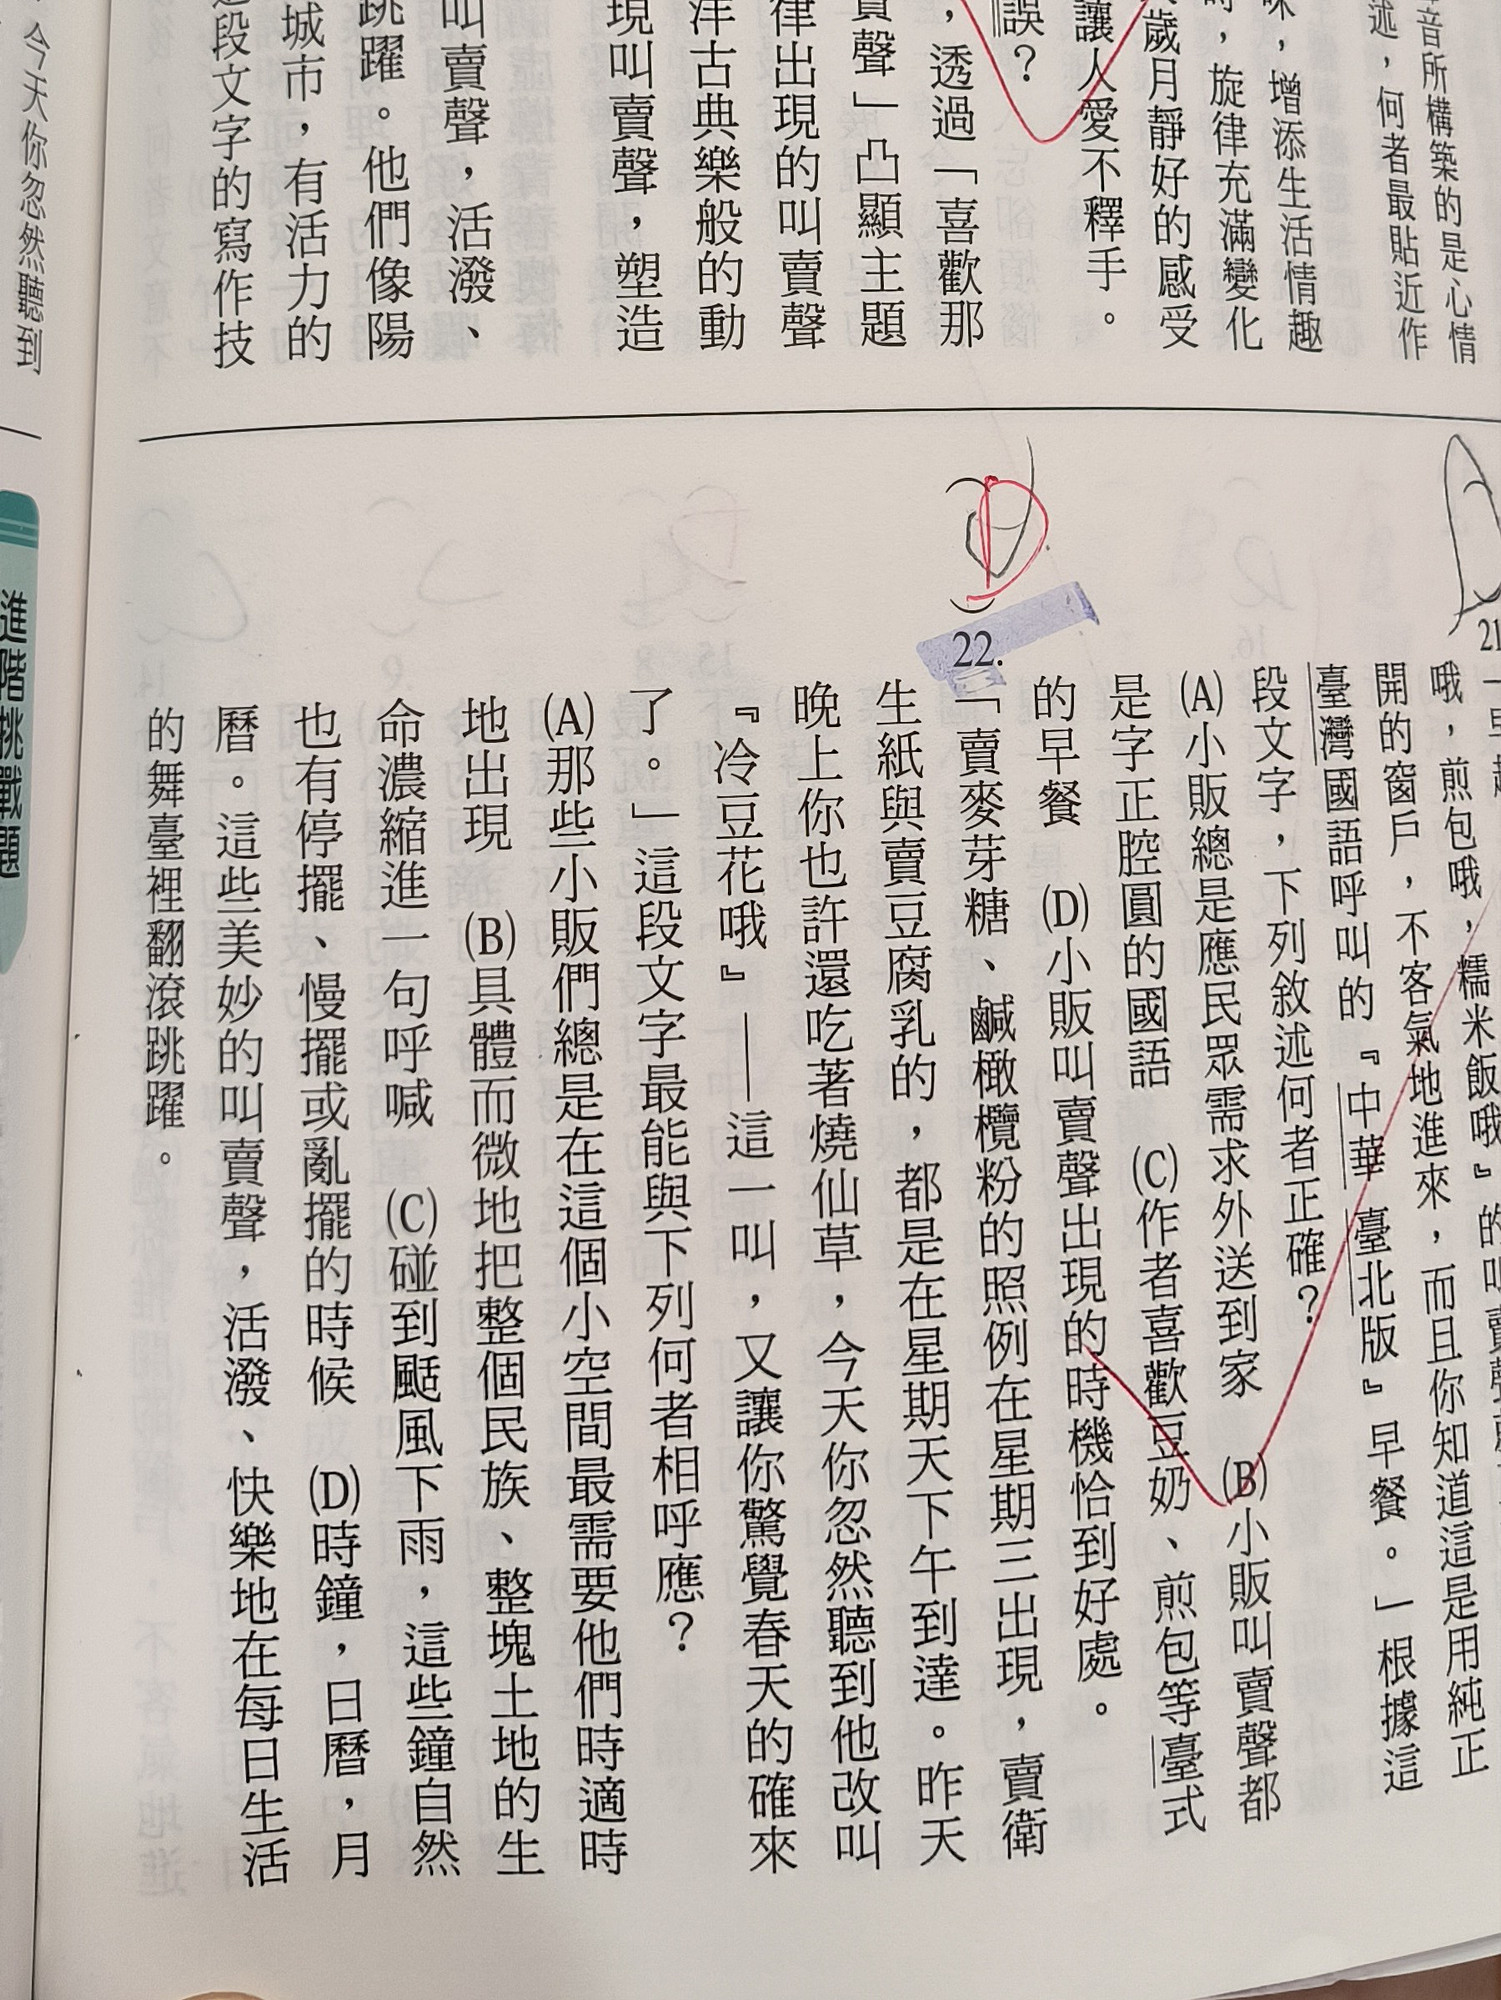 音所構築的是心情
述，何者最貼近作
味，增添生活情趣
，旋律充滿變化
歲月靜好的感受
讓人愛不釋手。
誤？
，透過「喜歡那
賣聲」凸顯主題
律出現的叫賣聲
洋古典樂般的動
現叫賣聲，塑造
叫賣聲，活潑、
跳躍。他們像陽
城市，有活力的
段文字的寫作技
今天你忽然聽到
進階挑戰題
21
哦，煎包哦，糯米飯哦』的叫賣聲
開的窗戶，不客氣地進來，而且你知道這是用純正
臺灣國語呼叫的『中華臺北版』早餐。」根據這
段文字，下列敘述何者正確？
(A)小販總是應民眾需求外送到家　(B)小販叫賣聲都
是字正腔圓的國語　(C)作者喜歡豆奶、煎包等臺式
的早餐　(D)小販叫賣聲出現的時機恰到好處。
D
22.「賣麥芽糖、鹹橄欖粉的照例在星期三出現，賣衛
生紙與賣豆腐乳的，都是在星期天下午到達。昨天
晚上你也許還吃著燒仙草，今天你忽然聽到他改叫
『冷豆花哦』——這一叫，又讓你驚覺春天的確來
了。」這段文字最能與下列何者相呼應？
(A)那些小販們總是在這個小空間最需要他們時適時
地出現　(B)具體而微地把整個民族、整塊土地的生
命濃縮進一句呼喊　(C)碰到颳風下雨，這些鐘自然
也有停擺、慢擺或亂擺的時候　(D)時鐘，日曆，月
曆。這些美妙的叫賣聲，活潑、快樂地在每日生活
的舞臺裡翻滾跳躍。